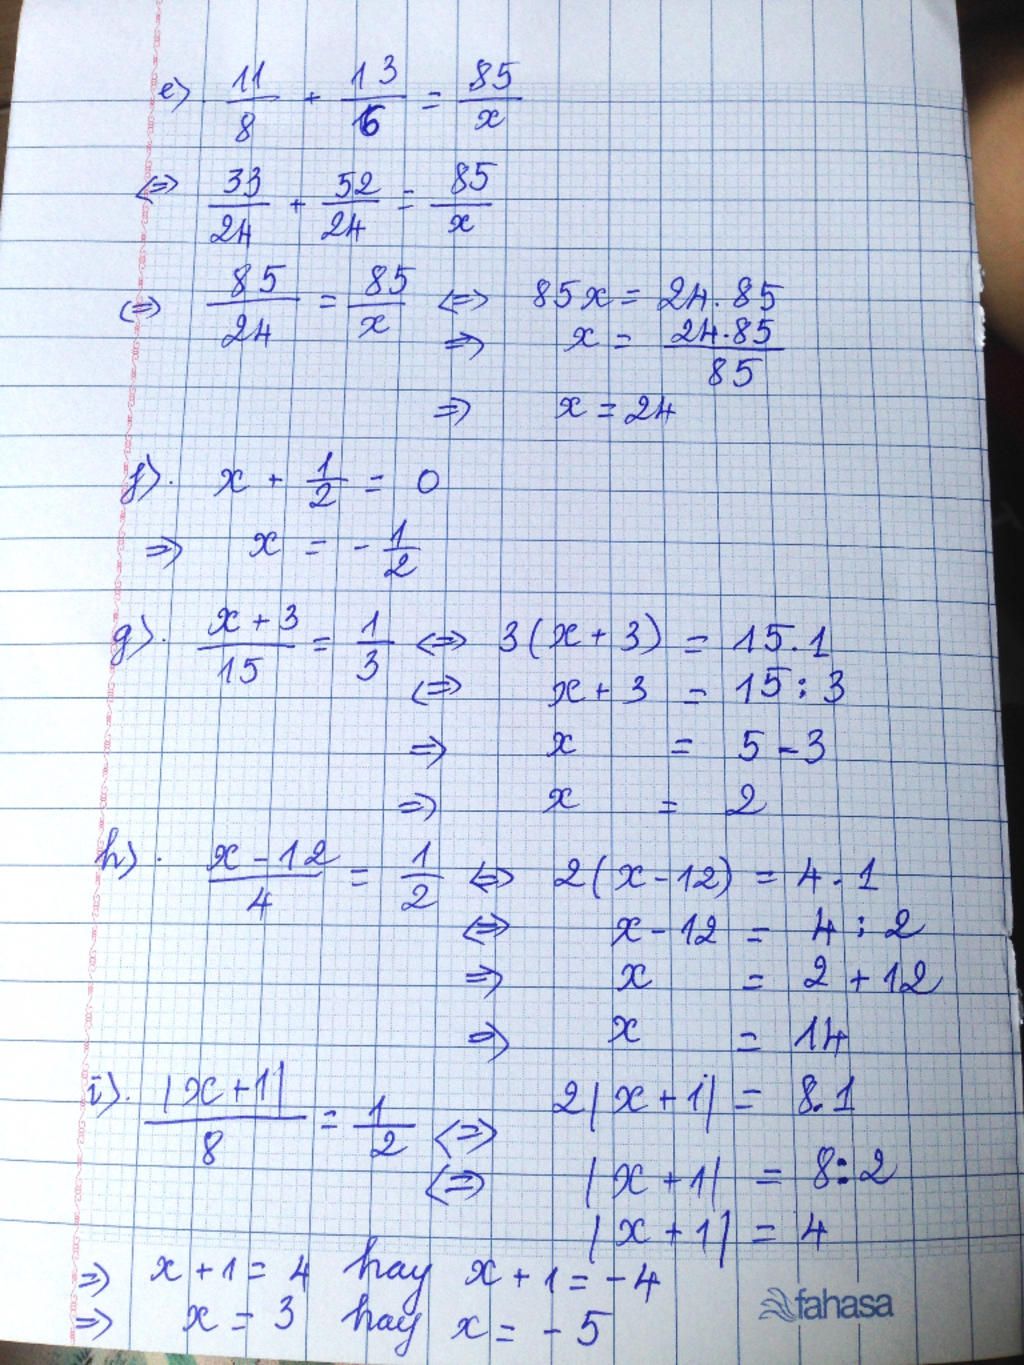 e). 11/8 + 13/6 = 85/x
⇔ 33/24 + 52/24 = 85/x
⇔ 85/24 = 85/x ⇔ 85x = 24.85
⇒ x = 24.85/85
⇒ x = 24
f). x + 1/2 = 0
⇒ x = -1/2
g). (x + 3)/15 = 1/3 ⇔ 3(x + 3) = 15.1
⇔ x + 3 = 15 : 3
⇒ x = 5 - 3
⇒ x = 2
h). (x - 12)/4 = 1/2 ⇔ 2(x - 12) = 4.1
⇔ x - 12 = 4 : 2
⇒ x = 2 + 12
⇒ x = 14
i). |x + 1|/8 = 1/2 ⇔ 2|x + 1| = 8.1
⇔ |x + 1| = 8 : 2
|x + 1| = 4
⇒ x + 1 = 4 hay x + 1 = -4
⇒ x = 3 hay x = -5
fahasa